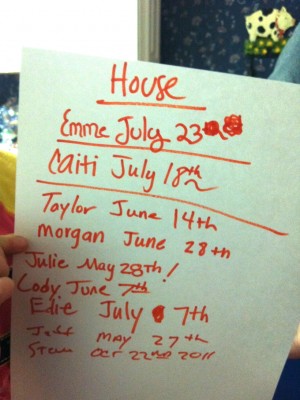 House
Emme July 23
Caiti July 18th
Taylor June 14th
morgan June 28th
Julie May 28th!
Cody June 7th
Edie July 7th
Jeff may 27th
Steve Oct 22nd 2011